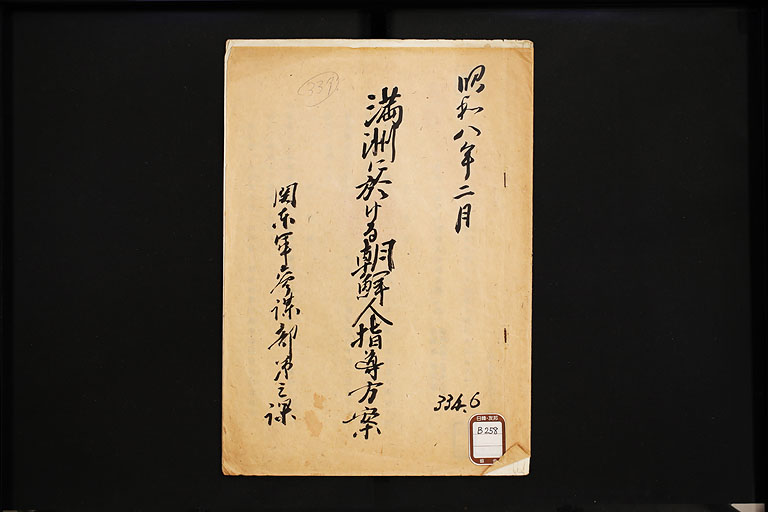 昭和八年二月
満洲に於ける朝鮮人指導方案
関东軍参謀部第三課
339
334.6
日韓・友邦
B 258